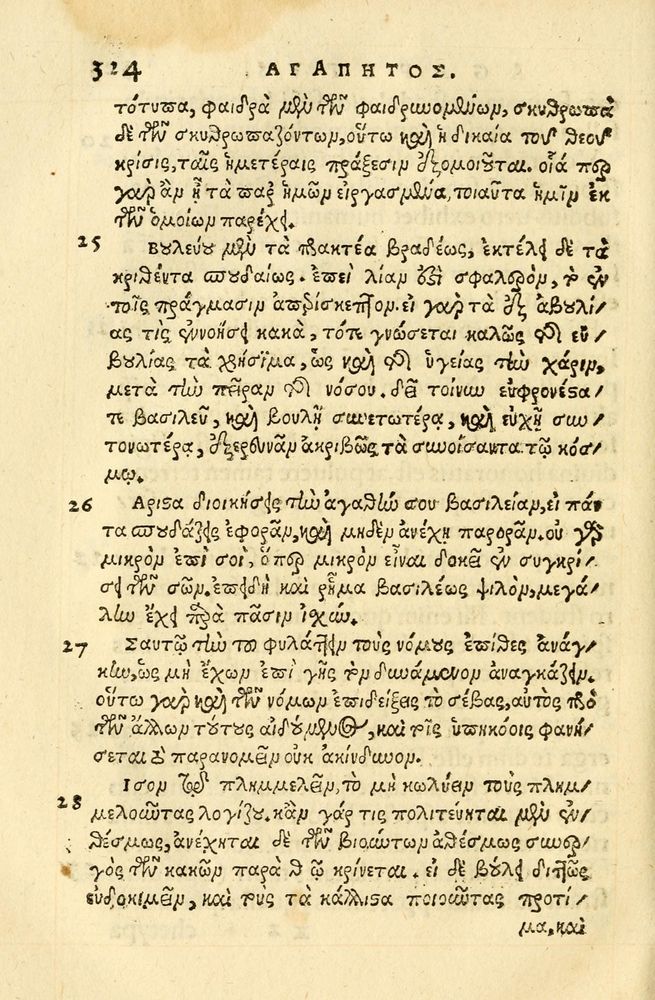 324 ΑΓΑΠΗΤΟΣ.
τότυπα, φαιδρὰ μὲν τῶν φαιδρυνομένων, σκυθρωπὰ
δὲ τῶν σκυθρωπαζόντων, οὕτω καὶ ἡ δικαία τοῦ θεοῦ
κρίσις, ταῖς ἡμετέραις πράξεσιν ἐξομοιοῦται. οἷά περ
γὰρ ἂν ᾖ τὰ παρ' ἡμῶν εἰργασμένα, τοιαῦτα ἡμῖν ἐκ
τῶν ὁμοίων παρέχει.
25 Βουλεύου μὲν τὰ πρακτέα βραδέως, ἐκτέλει δὲ τὰ
κριθέντα σπουδαίως. ἐπεὶ λίαν ἐστὶ σφαλερὸν, τὸ ἐν
τοῖς πράγμασιν ἀπερίσκεπτον. εἰ γὰρ τὰ ἐξ ἀβουλί/
ας τὶς ἐννοήσει κακὰ, τότε γνώσεται καλῶς τῆς εὐ/
βουλίας τὰ χρήσιμα, ὡς καὶ τῆς ὑγείας τὴν χάριν,
μετὰ τὴν πεῖραν τῆς νόσου. δεῖ τοίνυν ευφρονέστα/
τε βασιλεῦ, καὶ βουλῇ συνετωτέρᾳ, καὶ εὐχῇ συν/
τονωτέρᾳ, ἐξερευνᾶν ἀκριβῶς τὰ συνοίσοντα τῷ κόσ/
μῳ.
26 Αριστα διοικήσεις τὴν ἀγαθήν σου βασιλείαν, εἰ πάν/
τα σπουδάζεις ἐφορᾶν, καὶ μηδὲν ἀνέχῃ παρορᾶν. οὐ γὰρ
μικρὸν ἐπὶ σοί, ὅπερ μικρὸν εἶναι δοκεῖ ἐν συγκρί/
σει τῶν σῶν. ἐπειδὴ καὶ ῥῆμα βασιλέως ψιλὸν, μεγά/
λην ἔχει παρὰ πᾶσιν ἰχύν.
27 Σαυτῷ τὴν τοῦ φυλάττειν τοὺς νόμους ἐπίθες ἀνάγ/
κην, ὡς μὴ ἔχων ἐπὶ γῆς τὸν δυνάμενον ἀναγκάζειν.
οὕτω γὰρ καὶ τῶν νόμων ἐπιδείξεις τὸ σέβας, αὐτὸς πρὸ
τῶν ἄλλων τούτους αἰδούμενος, καὶ τοῖς ὑπηκόοις φανή/
σεται τὸ παρανομεῖν οὐκ ἀκίνδυνον.
28 Ισον τῷ πλημμελεῖν, τὸ μὴ κωλύειν τοὺς πλημ/
μελοῦντας λογίζου. κἂν γάρ τις πολιτεύηται μὲν ἐν/
θέσμως, ἀνέχηται δὲ τῶν βιούντων ἀθέσμως συνερ/
γὸς τῶν κακῶν παρὰ θεῷ κρίνεται. εἰ δὲ βούλει διττῶς
εὐδοκιμεῖν, καὶ τοὺς τὰ κάλλιστα ποιοῦντας προτί/
μα, καὶ